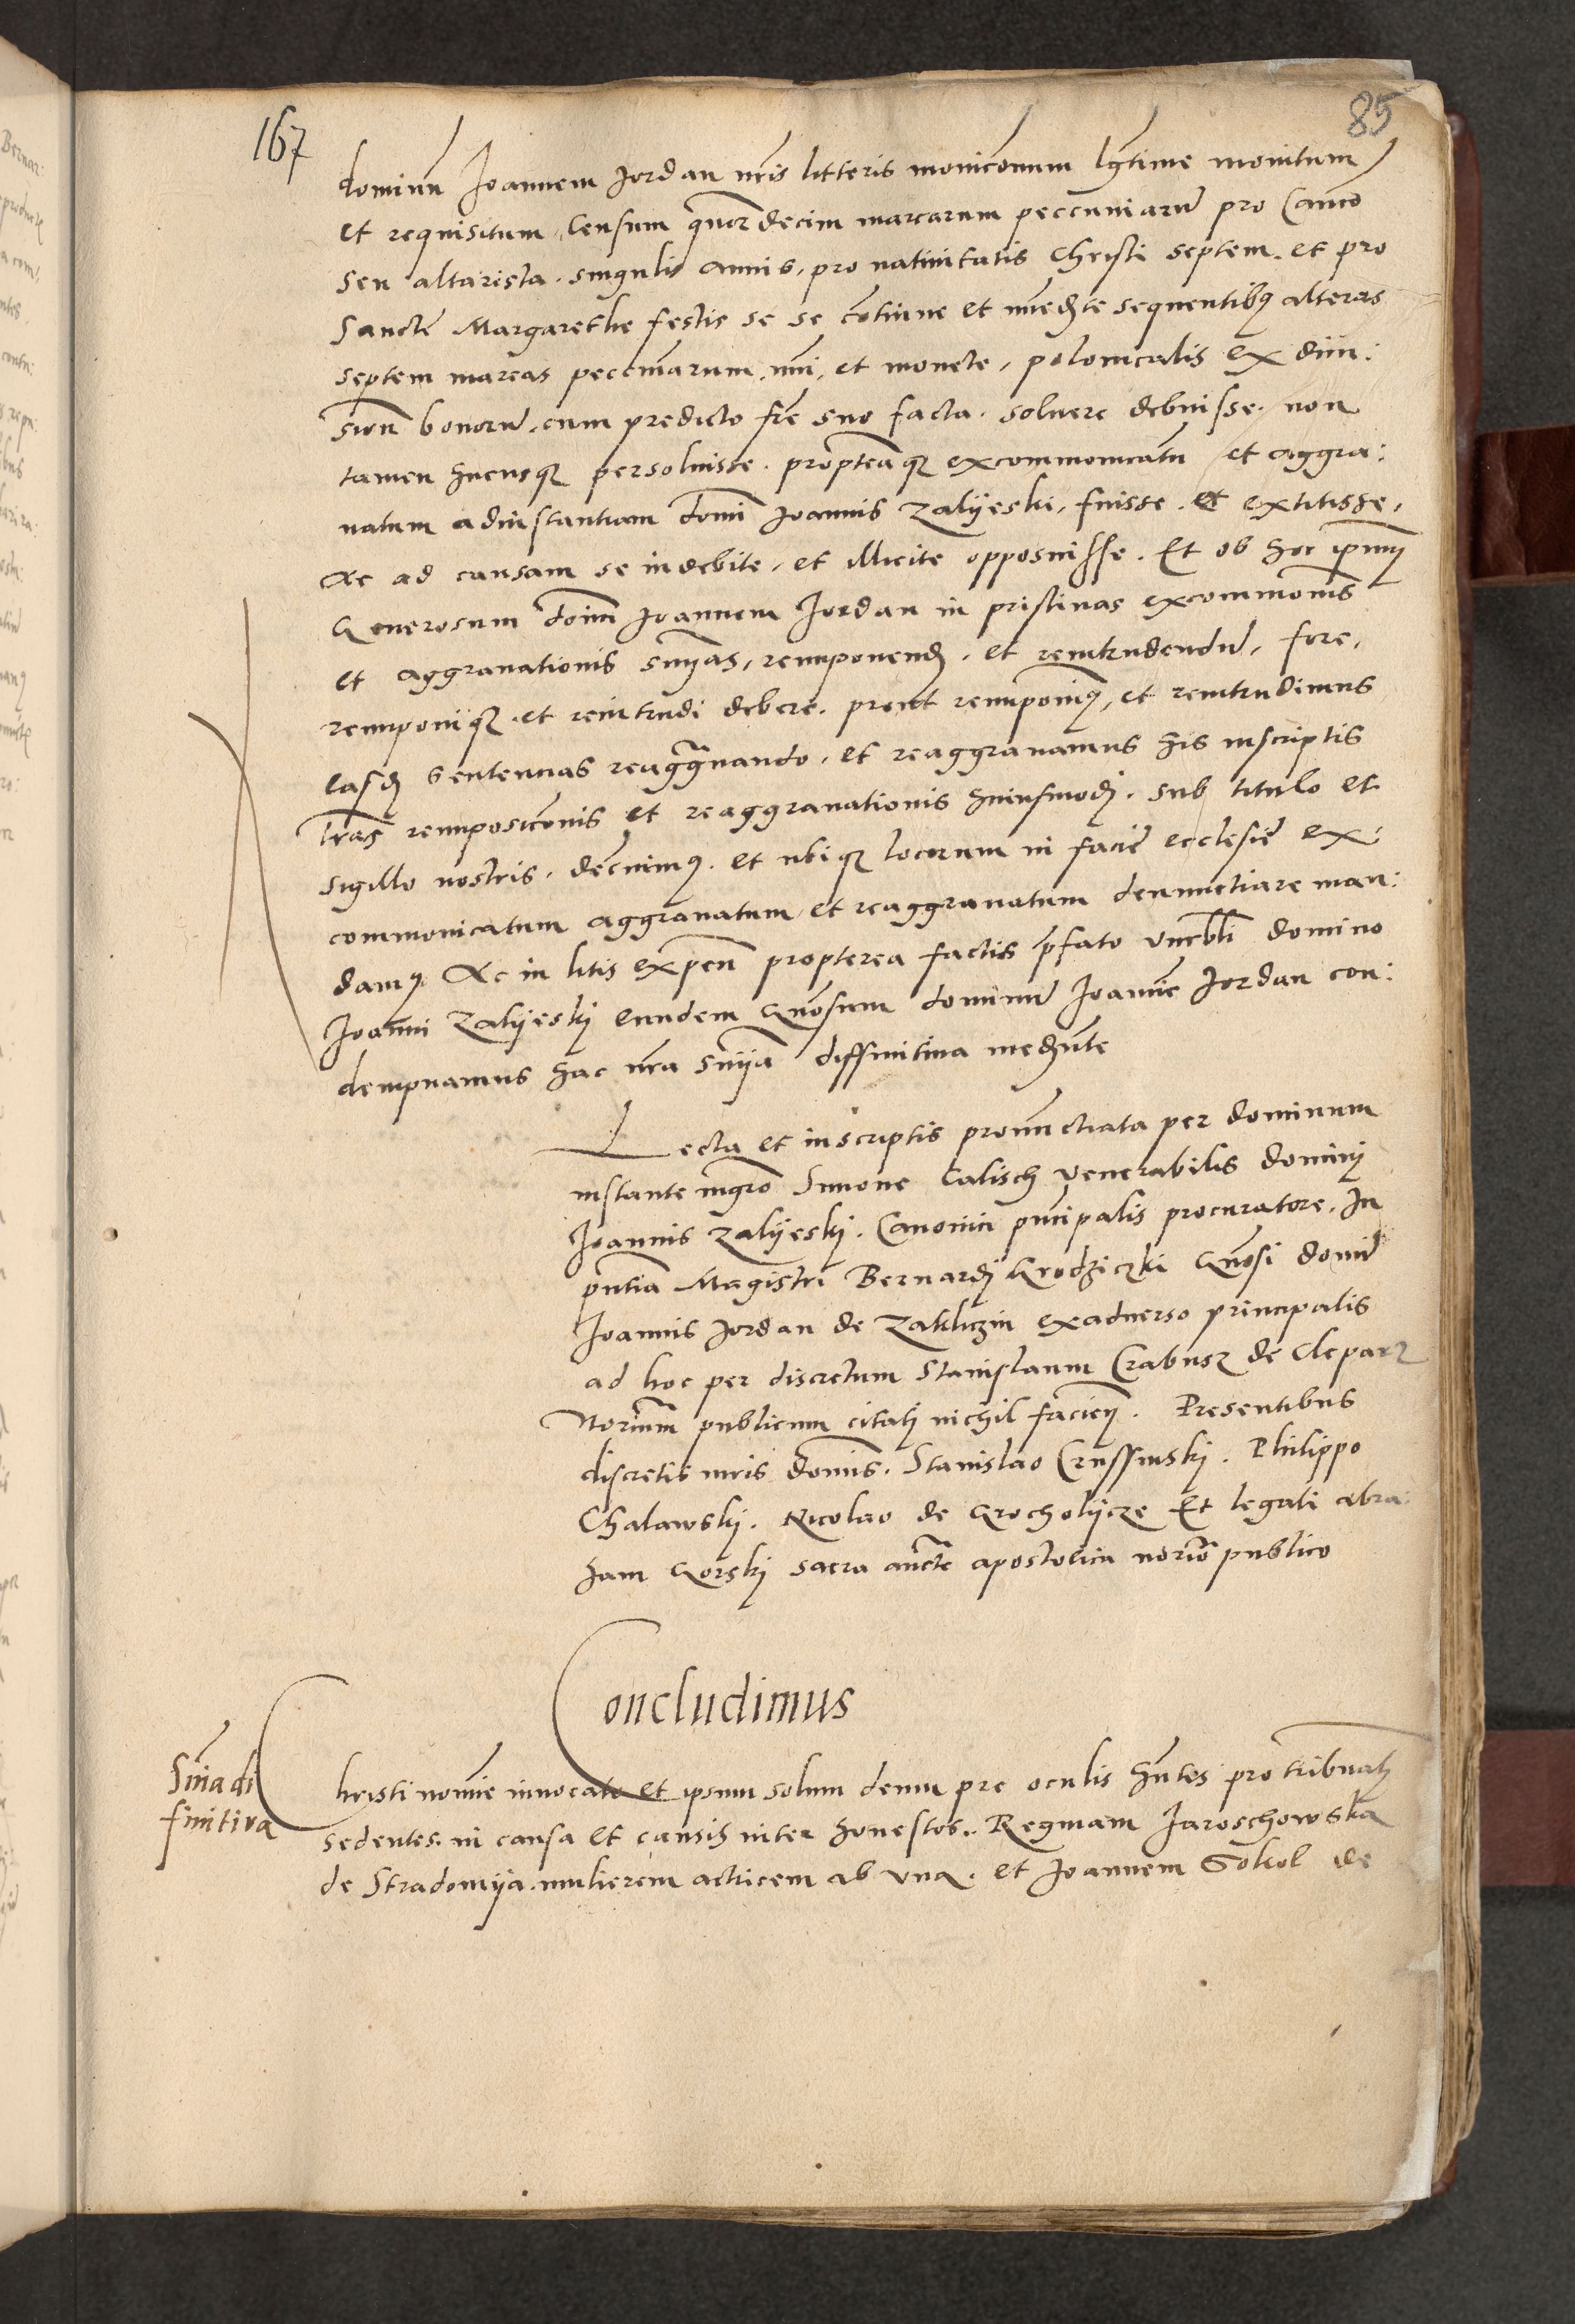 167
85
dominu Joannem Jordan nris litteris moniconum lgtime monitum
et requisitum, Censum quor decim marcarum peccuniaru pro Canco
seu altarista. singulis annis, pro nativitatis Christi septem. et pro
Sancte Margarethe festis se se cotinue et imedte sequentibq alteras
septem marcas peccniarum. nui, et monete, polonicalis ex divi:
sion bonoru. cum predicto fre suo facta. soluere debuisse. non
tamen hucusq persoluisse. propteaq excommonicatu et aggra:
uatum adinstantiam domi Joannis Zalyeski, fuisse. et extitisse,
Ac ad causam se indebite, et illicite opposuisse. Et ob hoc ipmu
Generosum domi Joannem Jordan in pristinas excommonis
et aggrauationis snyas, reimponend. et reintrudendu, fore,
reimponiq. et reintrudi debere. prout reimponimq, et reintrudimus
easd sentencias reaggrauando, et reaggrauamus his inscriptis
lras reimposiconis et reaggrauationis huiusmodj. sub titulo et
sigillo nostris. decnimq. et ubiq locorum in facie ecclesie ex:
commonicatum aggrauatum et reaggrauatum denunctiare man:
damq. Ac in litis expen propterea factis pfato vnerbli domino
Joanni Zalyeskj eundem Gnosum dominu Joanne Jordan con:
dempnamus hac nra snya diffinitiua mediante
Lecta et inscriptis pronunctiata per dominum
instante mgro Simone Calisch venerabilis dominj
Joannis Zalyeskj. Canonici pncipalis procuratore. In
pntia Magistri Bernardj Grodziczki Gnosi domi
Joannis Jordan de Zakliczin exaduerso principalis
ad hoc per discretum Stanislaum Crabusz de Cleparz
Norium publicum citatj nichil facien. Presentibus
discretis viris domis. Stanislao Crussinskj. Philippo
Chalawskj. Nicolao de Grocholycze Et legali abra:
ham Gorskj sacra aucte apostolica norio publico
Concludimus
Snia di
finitiva
Christi nomie innocato et ipsum solum deum pre oculis hntes pro tribunalj
sedentes. in causa et causis inter honestos. Reginam Jaroschowska
de Stradomya. mulierem actricem ab vna. et Joannem Sokol de